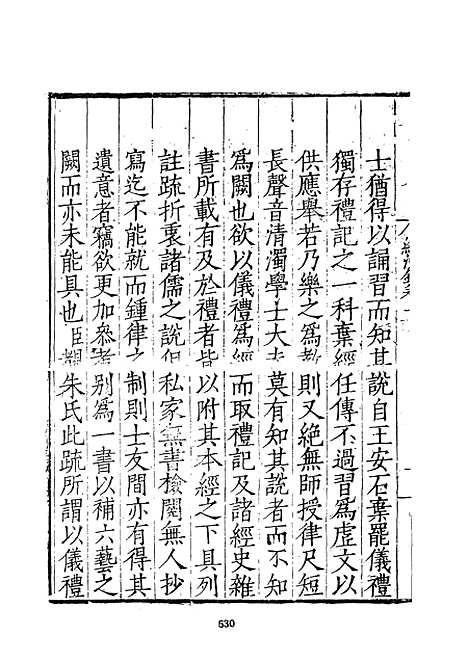 士猶得以誦習而知其說自王安石棄罷儀禮
獨存禮記之一科棄經任傳不過習爲虛文以
供應舉若乃樂之爲教則又絕無師授律尺短
長聲音清濁學士大夫莫有知其說者而不知
爲闕也欲以儀禮爲經而取禮記及諸經史雜
書所載有及於禮者皆以附其本經之下具列
註疏折衷諸儒之說但私家無書檢閱無人抄
寫迄不能就而鍾律之制則士友間亦有得其
遺意者竊欲更加參考別爲一書以補六藝之
闕而亦未能具也臣 朱氏此疏所謂以儀禮
630